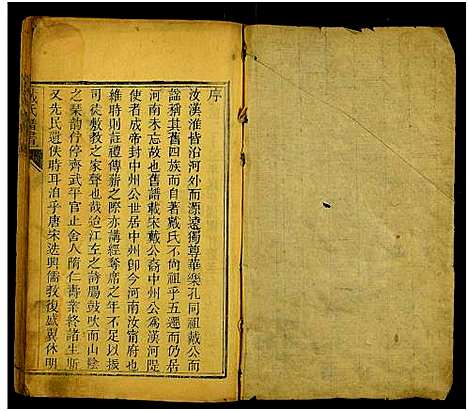 序
汝漢淮皆沿河外而源遠獨尊華樂孔同祖戴公而
謚猶其舊四族而自著戴氏不尚祖乎五遷而仍居
河南未忘故也舊譜載宋戴公裔中州公為漢河隄
使者成帝封中州公世居中州即今河南汝甯府也
維時則註禮傳薪之際亦講經奪席之年不足以振
司徒敷教之家聲也哉迨江左之詩腸鼓吹而山陰
之琴韵伃停齊武平官正舍人隋仁壽業終諸生斯
又先氏遺俠時耳洎乎唐宋迭興儒教復盛翼休明
戴氏譜書